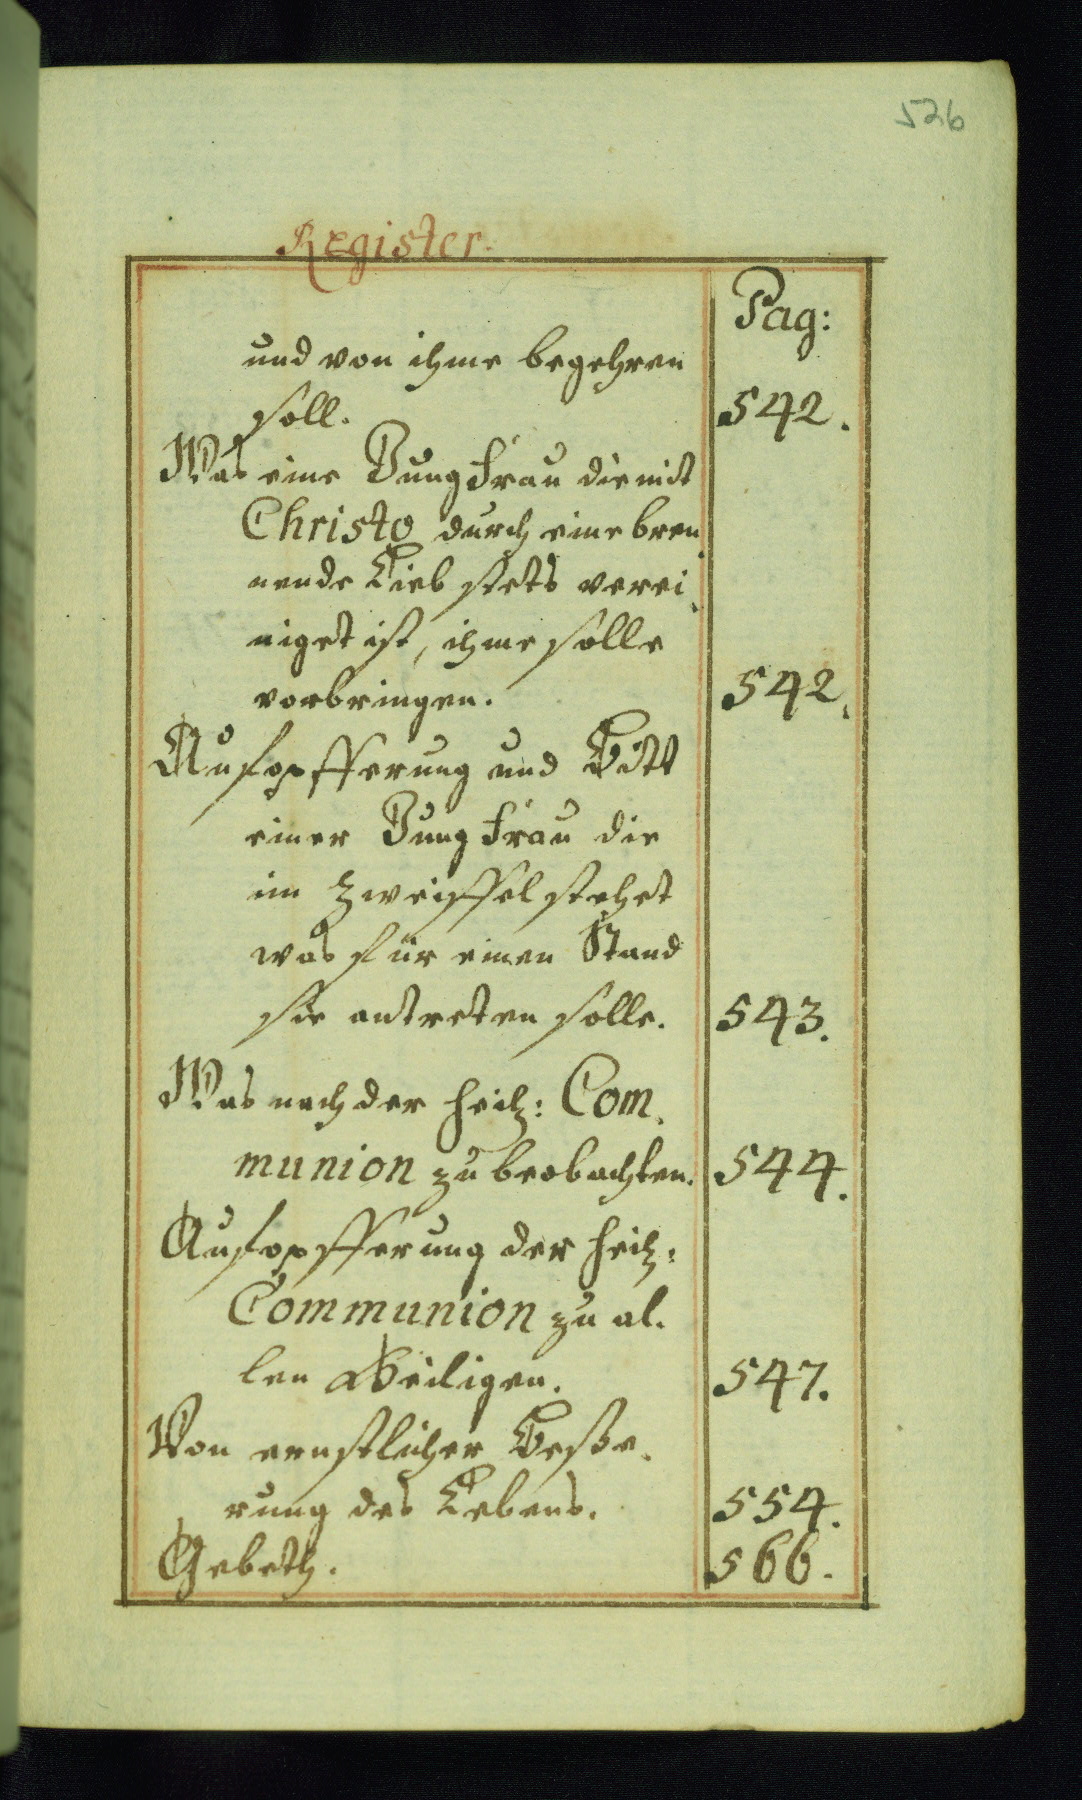 526
Register.
Pag:
und von ihme begehren
soll. 542.
Was eine Jungfrau die mit
Christo durch eine bren,
nende Lieb stets verei,
niget ist, ihme solle
vorbringen. 542.
Aufopfferung und Bitt
einer Jungfrau die
im Zweiffel stehet
was für einen Stand
sie antreten solle. 543.
Was nach der heil: Com,
munion zu beobachten. 544.
Aufopfferung der heil:
Communion zu al,
len Heiligen. 547.
Von ernstlicher Beße,
rung des Lebens. 554.
Gebeth. 566.